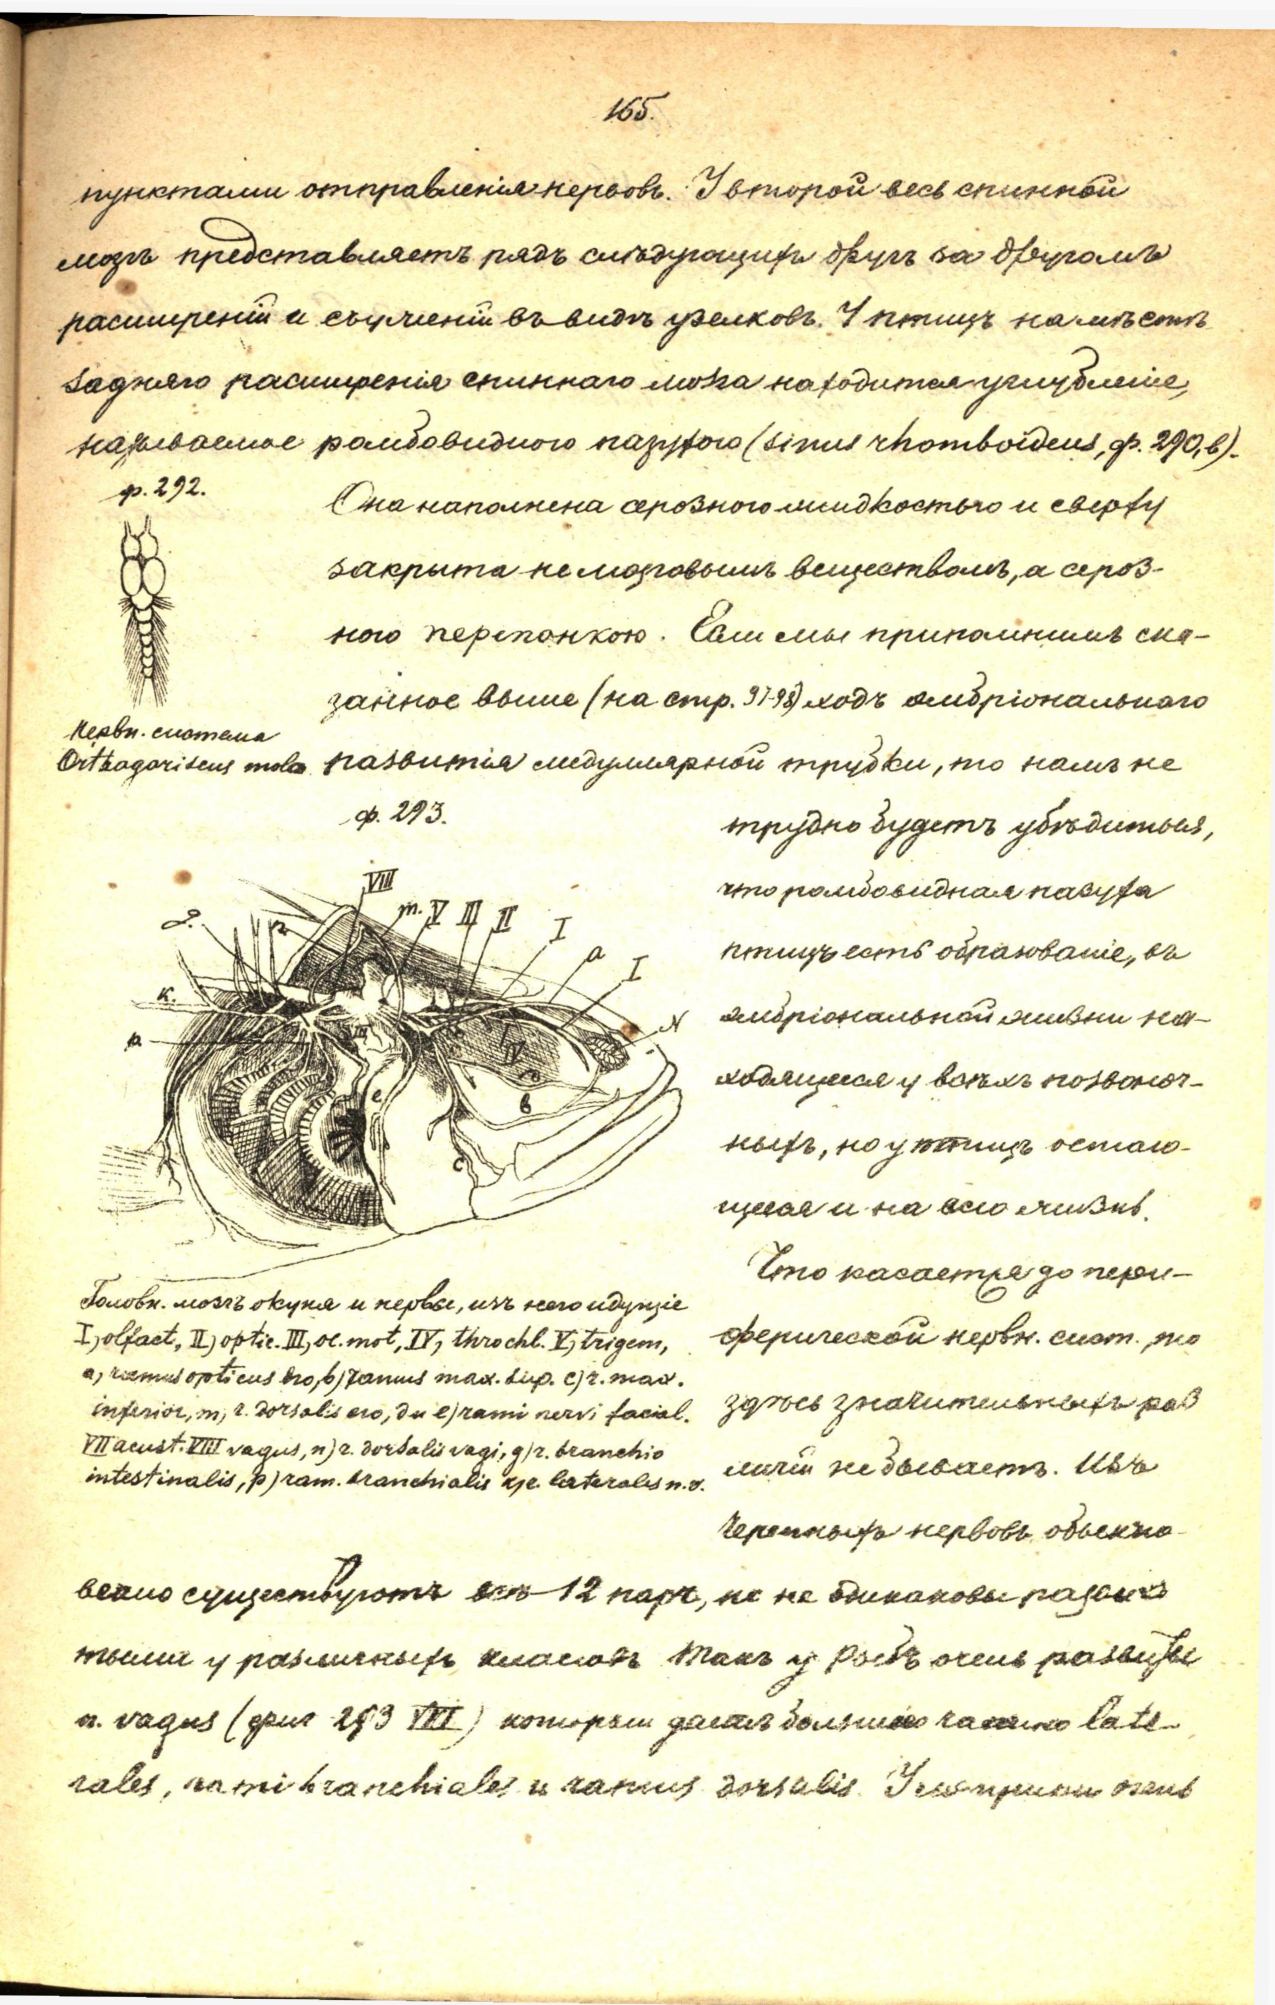 165.
пунктами отправленія нервовъ. У второй весь спинной
мозгъ представляетъ рядъ слѣдующихъ другъ за другомъ
расширеній и съуженій въ видѣ узелковъ. У птицъ на мѣстѣ
задняго расширенія спиннаго мозга находится углубленіе,
называемое ромбовидною пазухою (sinus rhomboideus, ф. 290, в).
ф. 292.
Она наполнена серозною жидкостью и сверху
закрыта не мозговымъ веществомъ, а сероз-
ною перепонкою. Если мы припомнимъ ска-
занное выше (на стр. 97-98) ходъ эмбріональнаго
Нервн. система
Orthagoriscus mola
развитія медуллярной трубки, то намъ не
ф. 293.
трудно будетъ убѣдиться,
что ромбовидная пазуха
птицъ есть образованіе, въ
эмбріональной жизни на-
ходящееся у всѣхъ позвоноч-
ныхъ, но у птицъ остаю-
щееся и на всю жизнь.
VIII
m.
V
III
II
I
a
I
N
к.
p.
VII
IV
e
в
c
Головн. мозгъ окуня и нервы, изъ него идущіе
I, olfact, II) optic. III, oc. mot, IV, throchl. V, trigem,
a, ramus opticus ero, b) ramus max. sup. c) r. max.
inferior, m, r. dorsalis ero, d и e) rami nervi facial.
VII acust. VIII vagus, n) r. dorsalis vagi, g) r. branchio
intestinalis, p) ram. branchialis к) r. laterales n. v.
Что касается до пери-
ферической нервн. сист., то
здѣсь значительныхъ раз
личій не бываетъ. Изъ
черепныхъ нервовъ обыкно-
венно существуютъ 12 паръ, но не одинаковы
тыми у различныхъ классовъ Такъ у рыбъ очень развитъ
n. vagus (фиг 293 VIII) который даетъ большею частью late-
rales, rami branchiales и ramus dorsalis. У очень